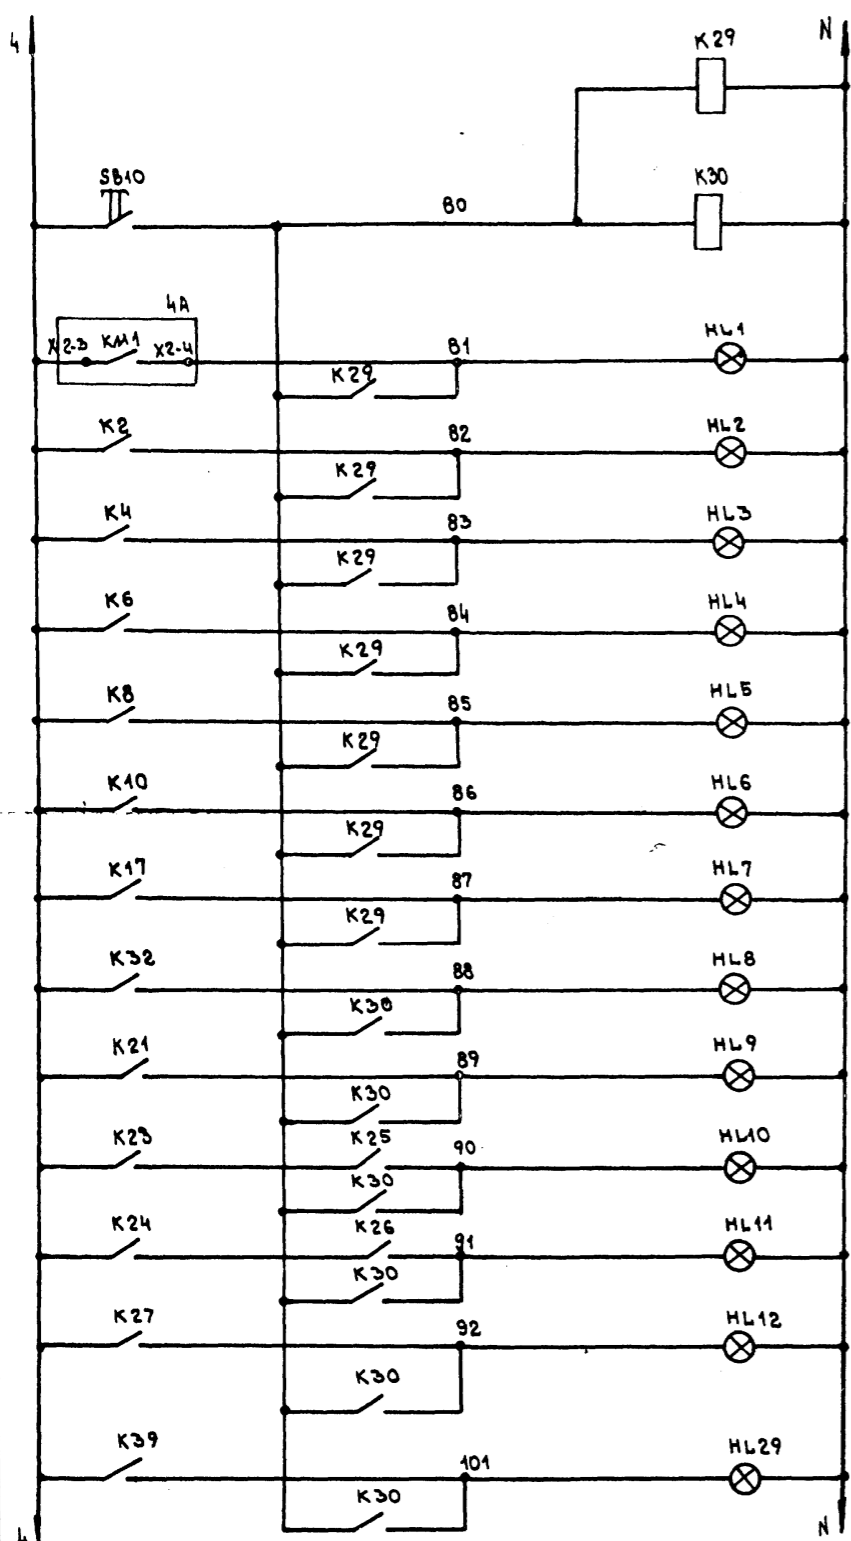 4 N
K29
SB10 80 K30
4A
X2-3 KM1 X2-4 81 HL1
K29
K2 82 HL2
K29
K4 83 HL3
K29
K6 84 HL4
K29
K8 85 HL5
K29
K10 86 HL6
K29
K17 87 HL7
K29
K32 88 HL8
K30
K21 89 HL9
K30
K23 K25 90 HL10
K30
K24 K26 91 HL11
K30
K27 92 HL12
K30
K39 101 HL29
K30
4 N